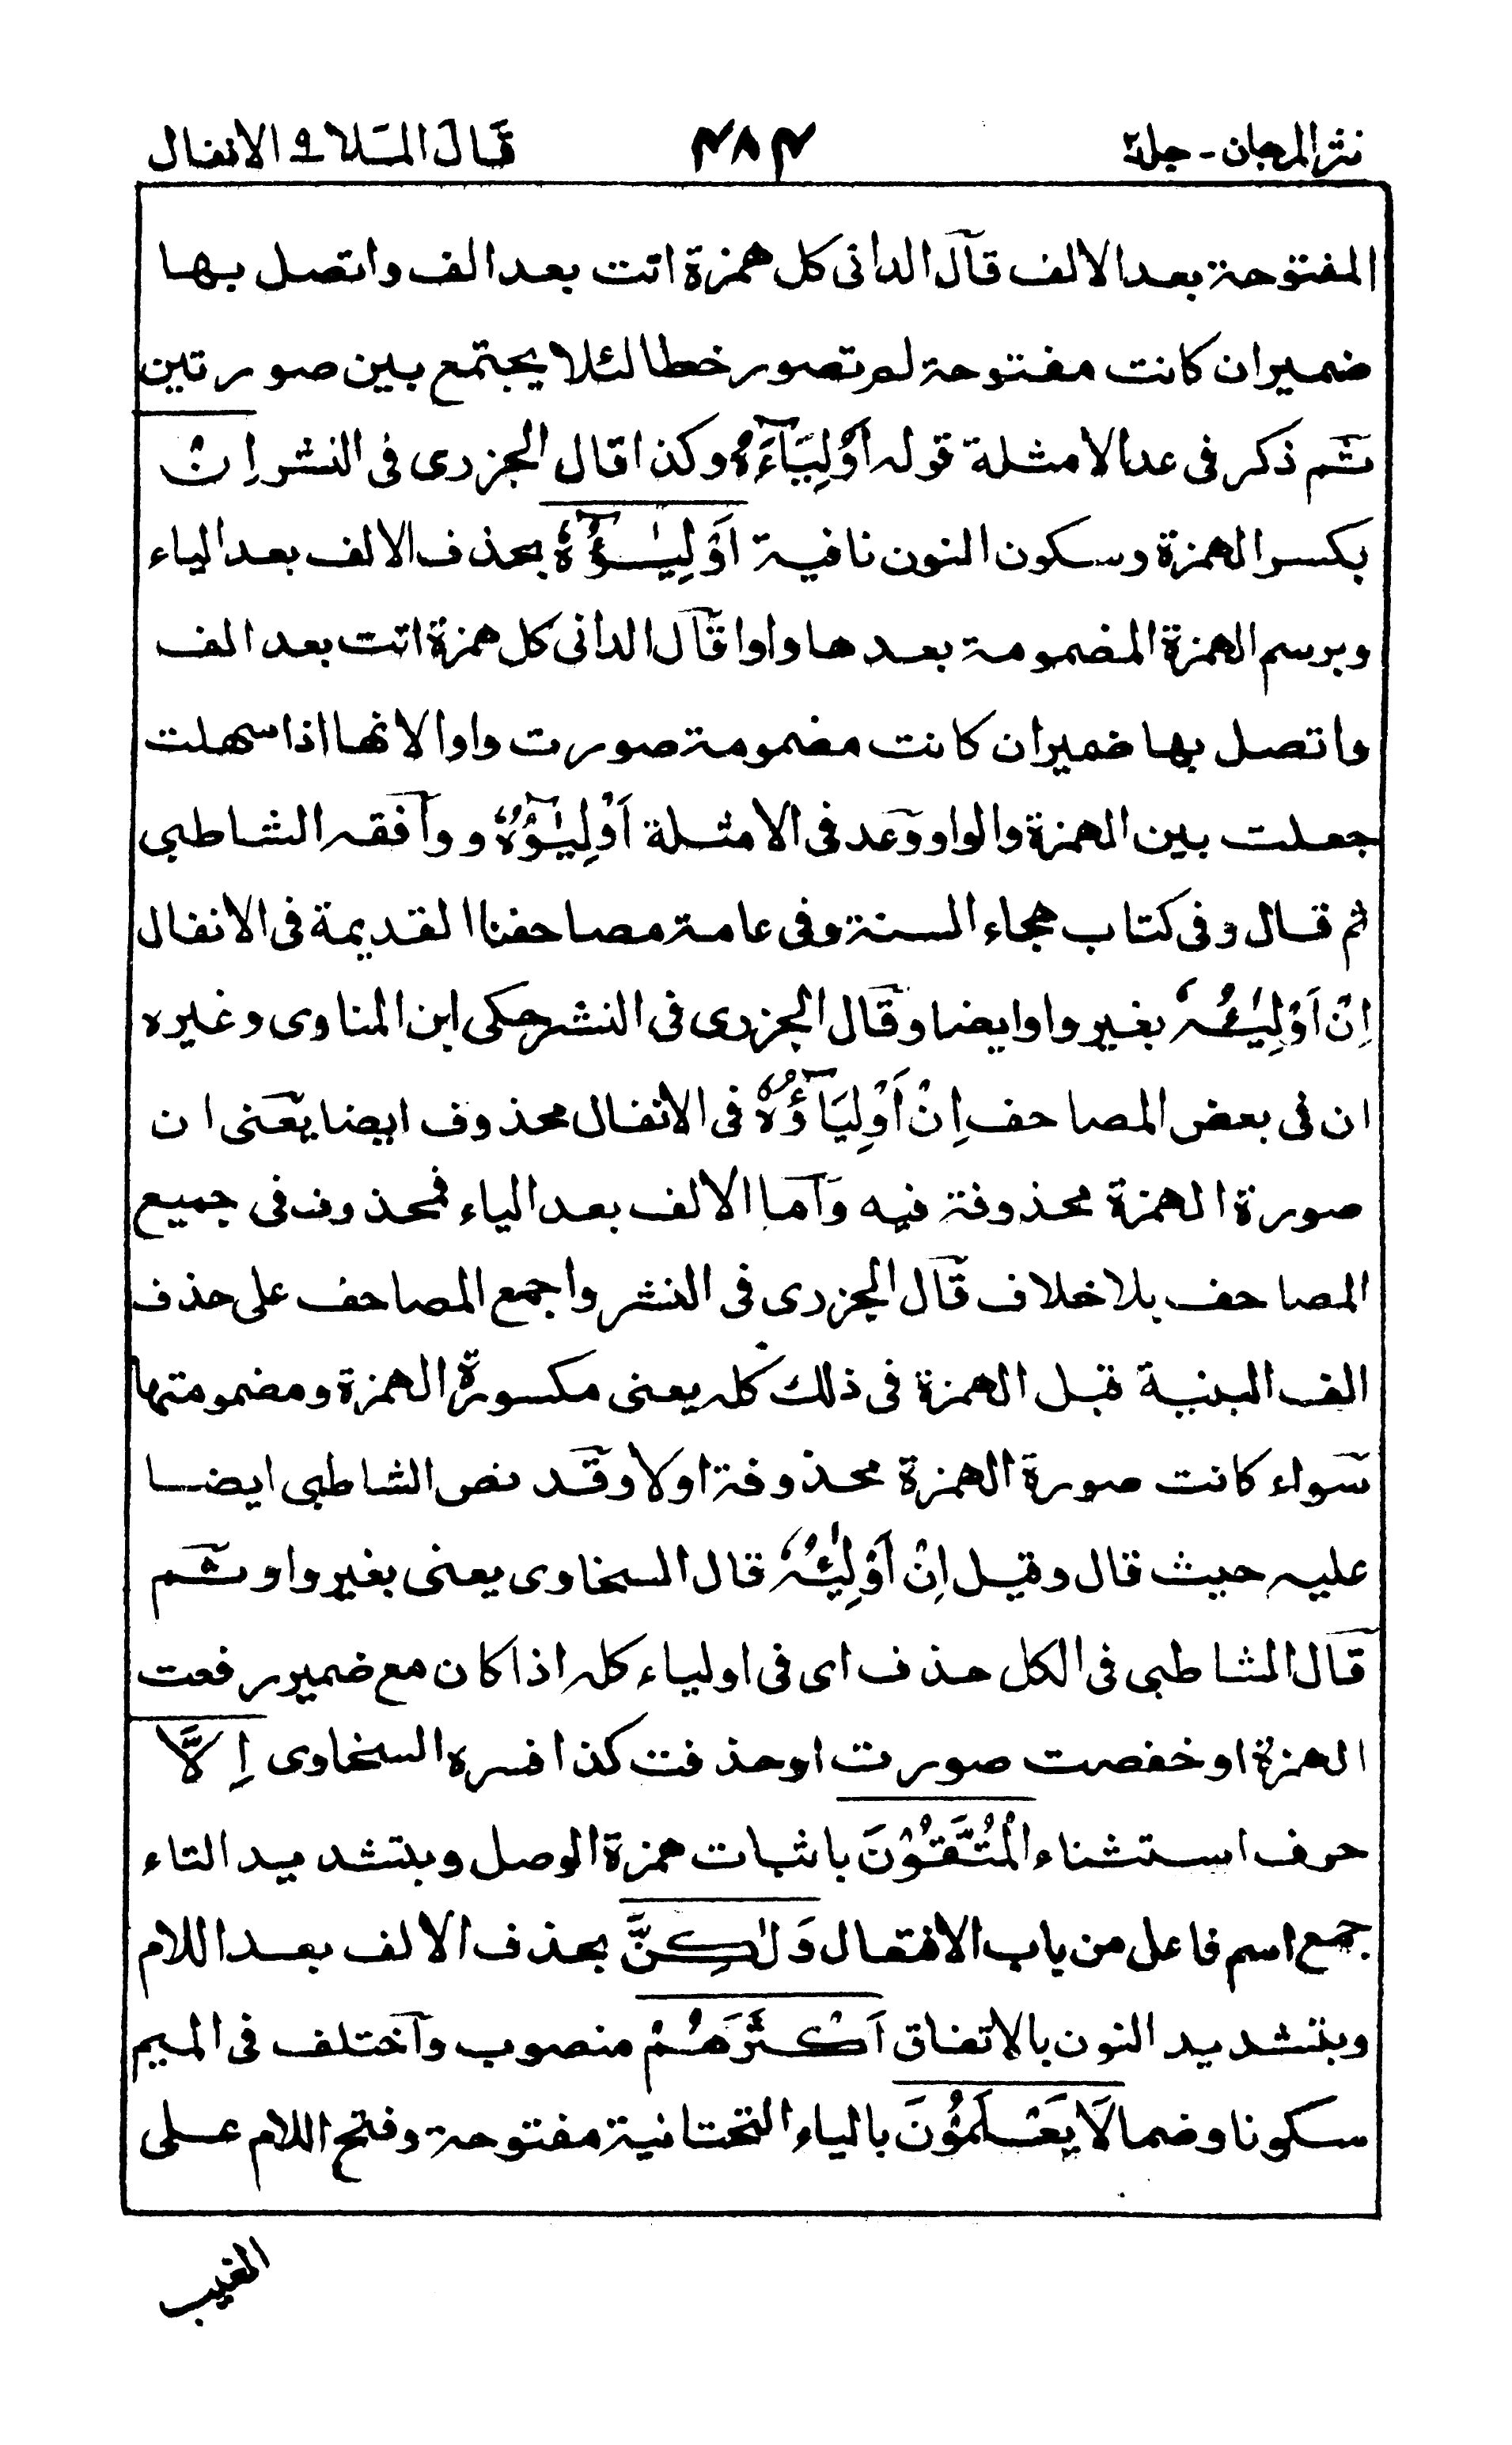 نثر المرجان - جلد٢ ٤٨٤ قَالَ الْمَلَا ٩ الانفال
المفتوحة بعد الالف قآل الدانى كل همزة اتت بعد الف واتصل بها
ضميران كانت مفتوحة لم تصور خطا لئلا يجتمع بين صورتين
ثم ذكر فى عد الامثلة قوله اَوْلِيَآءَهٗ وكذا قال الجزرى فى النشر اِنْ
بكسر الهمزة وسكون النون نافية اَوْلِيٰٓؤُهٗ بحذف الالف بعد الياء
وبرسم الهمزة المضمومة بعدها واوا قآل الدانى كل همزة اتت بعد الف
واتصل بها ضميران كانت مضمومة صورت واوا لانها اذا سهلت
جعلت بين الهمزة والواو وعد فى الامثلة اَوْلِيٰٓؤُهٗ ووآفقه الشاطبى
ثم قال وفى كتاب هجاء السنة وفى عامة مصاحفنا القديمة فى الانفال
اِنْ اَوْلِيٰـُٔهٗ بغير واو ايضا وقآل الجزرى فى النشر حكى ابن المناوى وغيره
ان فى بعض المصاحف اِنْ اَوْلِيَآؤُهٗ فى الانفال محذوف ايضا يعنى ان
صورة الهمزة محذوفة فيه وآما الالف بعد الياء فمحذوف فى جميع
المصاحف بلا خلاف قآل الجزرى فى النشر واجمع المصاحف على حذف
الف البنية قبل الهمزة فى ذلك كله يعنى مكسورة الهمزة ومضمومتها
سواء كانت صورة الهمزة محذوفة اولا وقد نص الشاطبى ايضا
عليه حيث قال وقيل اِنْ اَوْلِيٰـُٔهٗ قال السخاوى يعنى بغير واو وثم
قآل الشاطبى فى الكل حذف اى فى اولياء كله اذا كان مع ضمير رفعت
الهمزة او خفضت صورت او حذفت كذا فسره السخاوى اِلَّا
حرف استثناء الْمُتَّقُوْنَ باثبات همزة الوصل وبتشديد التاء
جمع اسم فاعل من باب الافتعال وَلٰكِنَّ بحذف الالف بعد اللام
وبتشديد النون بالاتفاق اَكْثَرَهُمْ منصوب وآختلف فى الميم
سكونا وضما لَا يَعْلَمُوْنَ بالياء التحتانية مفتوحة وفتح اللام على
الغيب